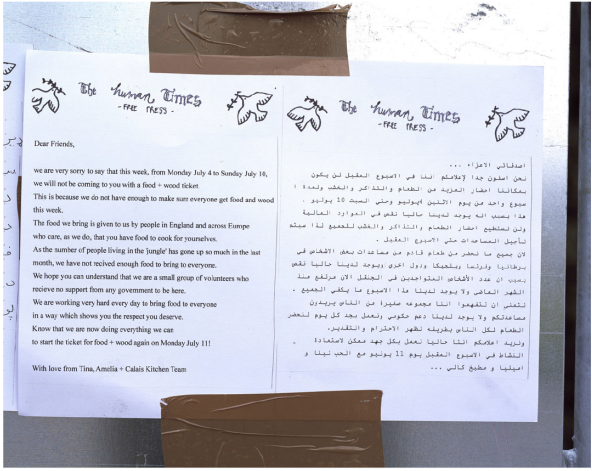 The human Times
- FREE PRESS -
Dear Friends,
we are very sorry to say that this week, from Monday July 4 to Sunday July 10,
we will not be coming to you with a food + wood ticket.
This is because we do not have enough to make sure everyone get food and wood
this week.
The food we bring is given to us by people in England and across Europe
who care, as we do, that you have food to cook for yourselves.
As the number of people living in the 'jungle' has gone up so much in the last
month, we have not recived enough food to bring to everyone.
We hope you can understand that we are a small group of volunteers who
recieve no support from any government to be here.
We are working very hard every day to bring food to everyone
in a way which shows you the respect you deserve.
Know that we are now doing everything we can
to start the ticket for food + wood again on Monday July 11!
With love from Tina, Amelia + Calais Kitchen Team
The human Times
- FREE PRESS -
اصدقائي الاعزاء ...
نحن اسفون جدا لإعلامكم اننا في الاسبوع المقبل لن يكون
بمكاننا احضار المزيد من الطعام والتذاكر والخشب ولمدة ا
سبوع واحد من يوم الاثنين 4يوليو وحتى السبت 10 يوليو .
هذا بسبب انه يوجد لدينا حاليا نقص في الموارد
ولن نستطيع احضار الطعام والتذاكر والخشب للجميع لذا سيتم
تأجيل المساعدات حتى الاسبوع المقبل .
لان جميع ما نحضر من طعام قادم من مساعدات بعض الاشخاص في
برطانيا وفرنسا وبلجيكا ودول اخرى ويوجد لدينا حاليا نقص
بسبب ان عدد الأشخاص المتواجدين في الجنقل الان مرتفع منذ
الشهر الماضي ولا يوجد لدينا هذا الاسبوع ما يكفي الجميع .
نتمنى ان تتفهموا اننا مجموعه صغيرة من الناس يريدون
مساعدتكم ولا يوجد لدينا دعم حكومي ونعمل بجد كل يوم لنحضر
الطعام لكل الناس بطريقه تظهر الاحترام والتقدير.
ونريد اعلامكم اننا حاليا نعمل بكل جهد ممكن لاستعادة
النشاط في الاسبوع المقبل يوم 11 يونيو مع الحب تينا و
اميليا و مطبخ كالي ...